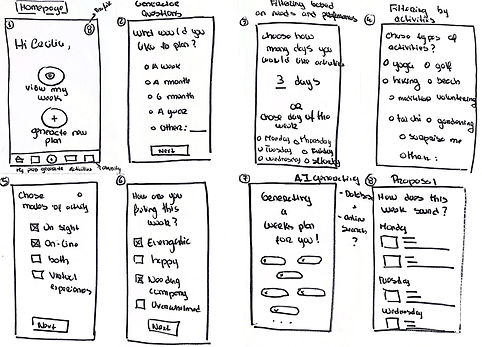 ① Homepage
Profile
Hi Cecilia,
view my
week
generate new
plan
My plan generate Activities
② Generator
Questions
What would you
like to plan?
A week
A month
6 month
A year
Other: __
Next
③ Filtering based
on needs and preferences
choose how
many days you
would like activities
3 days
OR
chose day of the
week
Monday Thursday
Tuesday Friday
Wednesday Saturday
④ Filtering by
activities
chose types of
activities?
yoga golf
hiking beach
volunteering
tai chi gardening
surprise me
other:
⑤ Chose
modes of activity
On sight
On-Line
both
Virtual
experiences
Next
⑥ How are you
feeling this
week?
Energetic
happy
Needing
company
Overwhelmed
Next
⑦ AI generating
Generating
a
weeks plan
for you!
- Database
+
- online
search
?
⑧ Proposal
How does this
week sound?
Monday
Tuesday
Wednesday